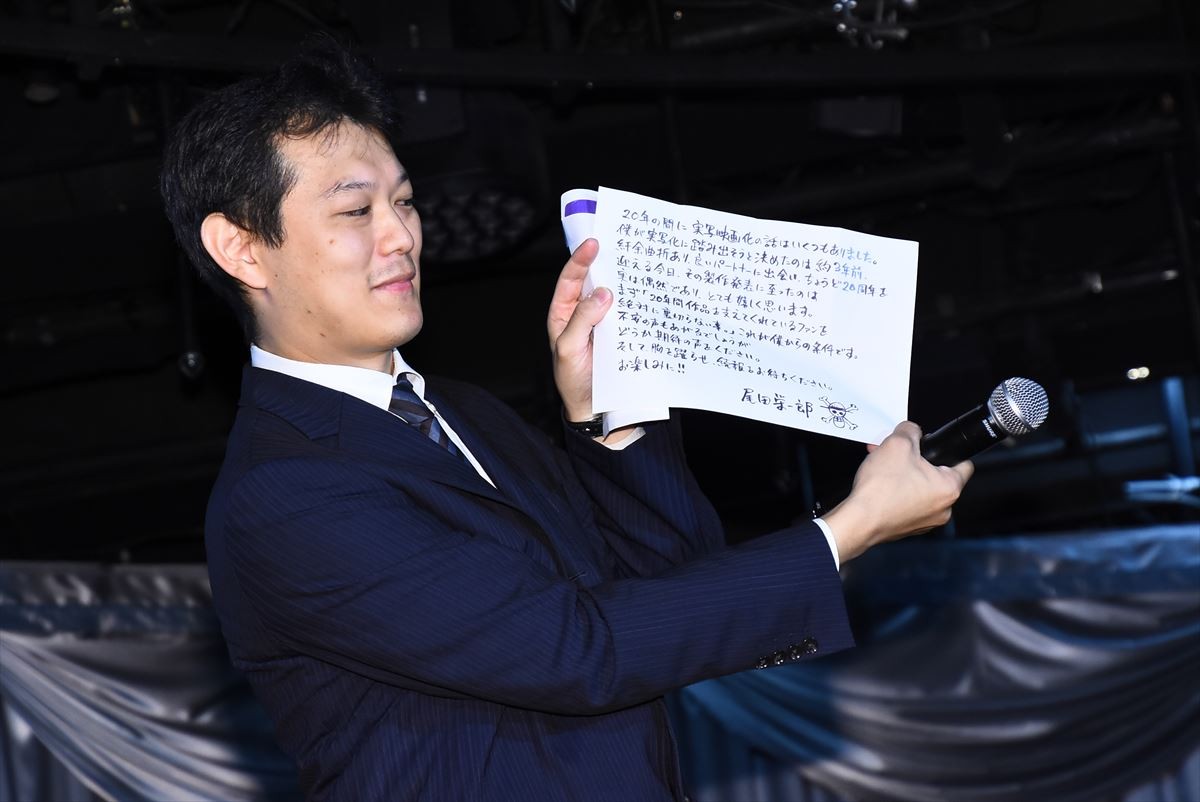 20年の間に実写映画化の話はいくつもありました。
僕が実写化に踏み出そうと決めたのは約3年前、
紆余曲折あり、良いパートナーに出会い、ちょうど20周年を
迎える今日、その製作発表に至ったのは
実は偶然であり、とても嬉しく思います。
まず"20年間作品を支えてくれているファンを
絶対に裏切らない事"。これが僕からの条件です。
不安の声もあがるでしょうが
どうか期待の声をください。
そして胸を躍らせ、続報をお待ちください。
お楽しみに!!
尾田栄一郎
SHURE